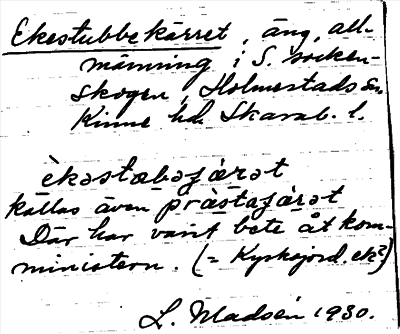 Ekestubbekärret, äng, all-
männing i S. socken-
skogen, Holmestads sn,
Kinne hd. Skarab. l.
èkəstæbəʃæ̀rət
kallas även præ̀stəʃæ̀rət
Där har varit bete åt kom-
ministern. (= Kyrkojord. ek?)
L. Madsén 1930.